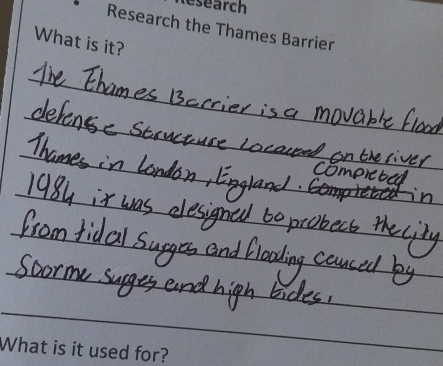 Research
Research the Thames Barrier
What is it?
The Thames Barrier is a movable flood
defense structure located on the river
Thames in London, England. Completed in
1984 it was designed to protect the city
from tidal surges and flooding caused by
Storme surges and high tides.
What is it used for?